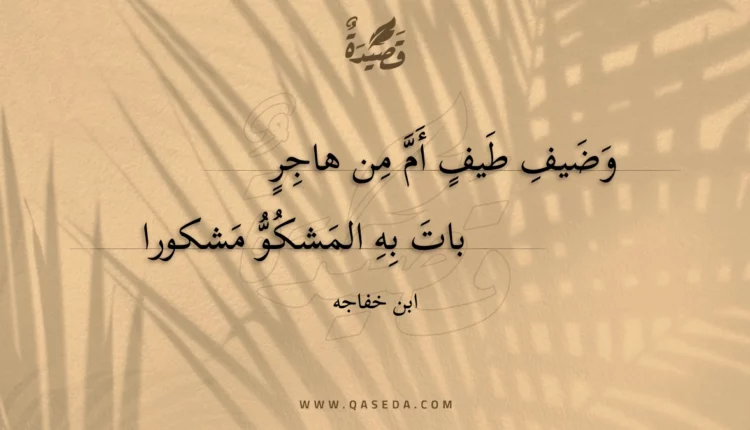 قَصِيْدَةٌ
وَضَيفِ طَيفٍ أَمَّ مِن هاجِرٍ
باتَ بِهِ المَشكُوُّ مَشكورا
ابن خفاجه
WWW.QASEDA.COM